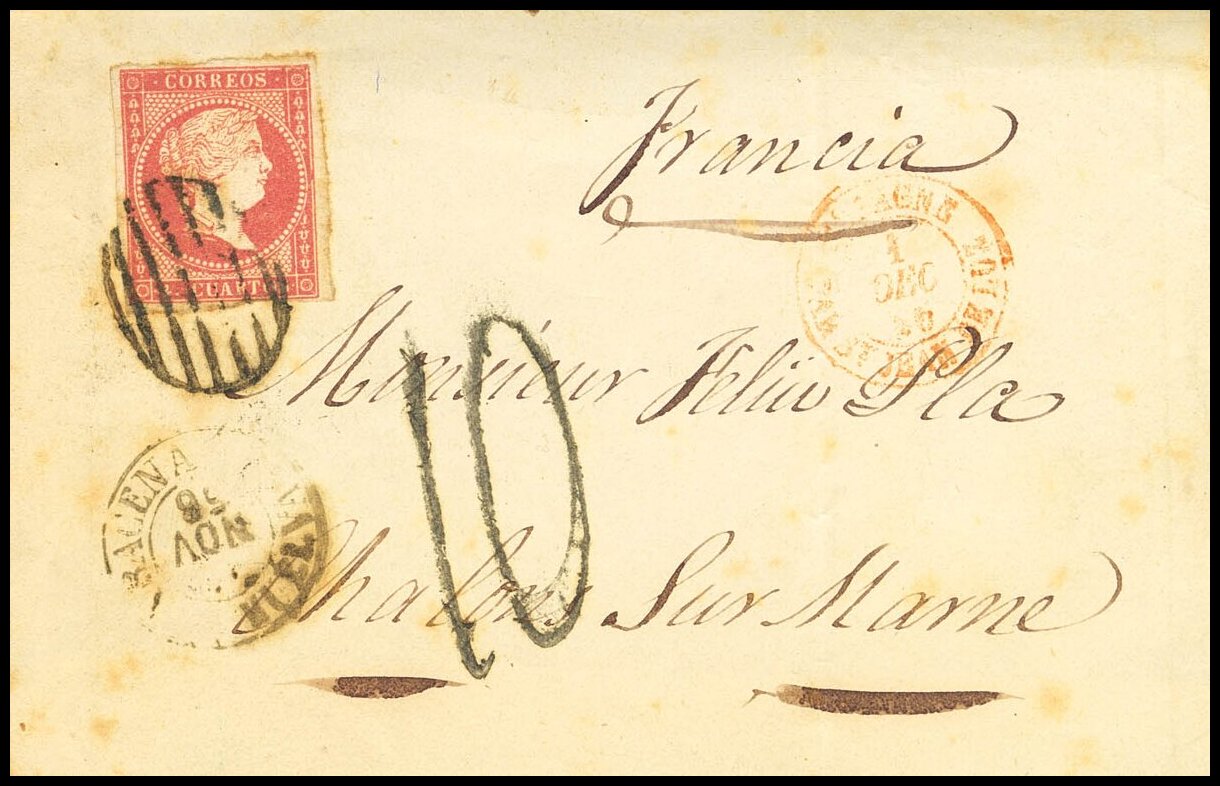 CORREOS
CUARTOS
Francia
1
DEC
Monsieur Feliu Pla
NOV
56
10
Chalons Sur Marne